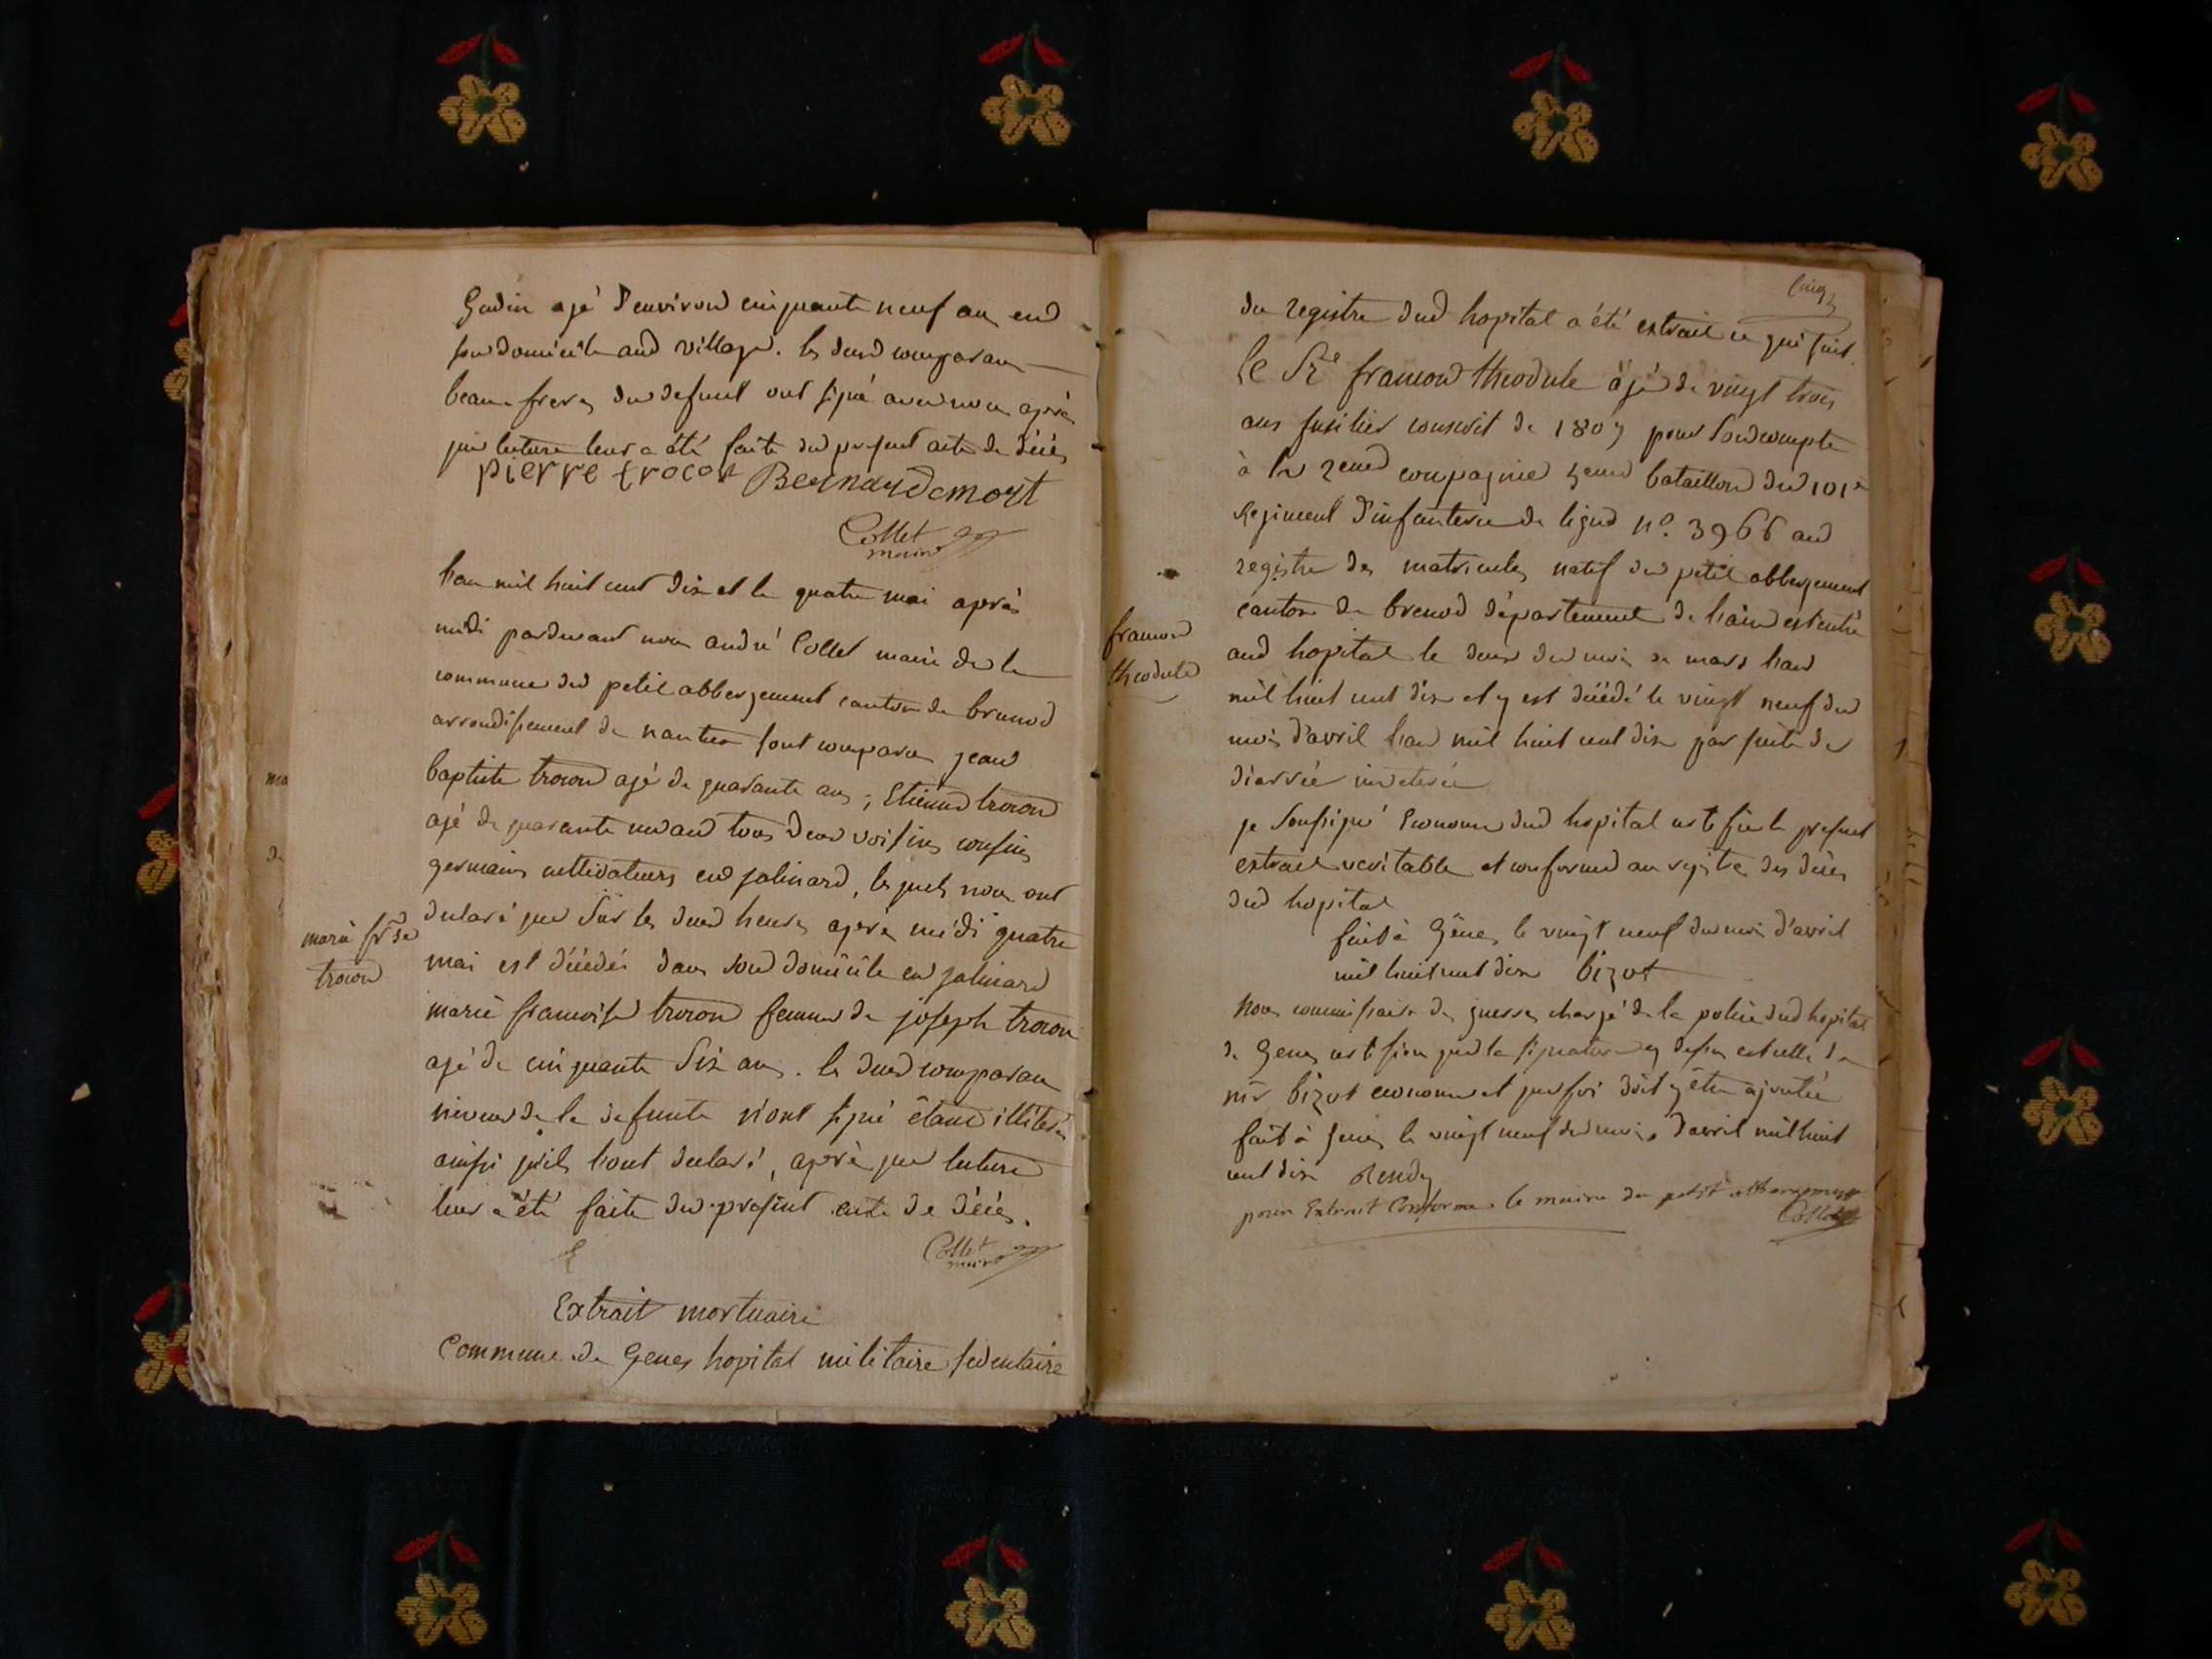 Gudin agé d'environ cinquante neuf ans en
son domicile aud village. les deux comparans
beaux freres du defunt ont signé avec nous après
que lecture leur a été faite du present acte de décès
pierre trocon Bernard Demort
Collet
maire
l'an mil huit cent dix et le quatre mai après
midi pardevant nous andré Collet maire de la
commune du petit abbergement canton de brenod
arrondissement de nantua sont comparu jean
baptiste trocon agé de quarante ans, Etienne trocon
agé de quarante un an tous deux voisins cousins
germains cultivateurs en jalinard, lesquels nous ont
declaré que sur les deux heures après midi quatre
mai est décédée dans son domicile en jalinard
marie fr.se
trocon
marie francoise trocon femme de joseph trocon
agé de cinquante six ans. les deux comparans
neveux de la defunte n'ont signé étant illiterés
ainsi qu'ils l'ont declaré, après que lecture
leur a été faite du present acte de décès.
Collet
maire
Extrait mortuaire
Commune de Genes hopital militaire sedentaire
Cinq
du registre dud hopital a été extrait ce qui suit
le Sr framond theodule agé de vingt trois
ans fusilier conscrit de 1807 pour son compte
à la 2eme compagnie 5eme bataillon du 101e
Regiment d'infanterie de ligne no. 3966 au
registre des matricules natif du petit abbergement
canton de brenod département de l'ain est entré
framond
theodule
aud hopital le deux du mois de mars l'an
mil huit cent dix et y est décédé le vingt neuf du
mois d'avril l'an mil huit cent dix par suite de
diarrée inveterée
je soussigné Econome dud hopital certifie le present
extrait veritable et conforme au registre des décès
dud hopital
fait à Gênes le vingt neuf du mois d'avril
mil huit cent dix bizot
nous commissaire des guerres chargé de la police dud hopital
de Genes certifions que la signature cy dessus est celle de
mr bizot econome et que foi doit y être ajoutée
fait à Genes le vingt neuf du mois d'avril mil huit
cent dix
pour Extrait Conforme le maire du petit abbergement
Collet